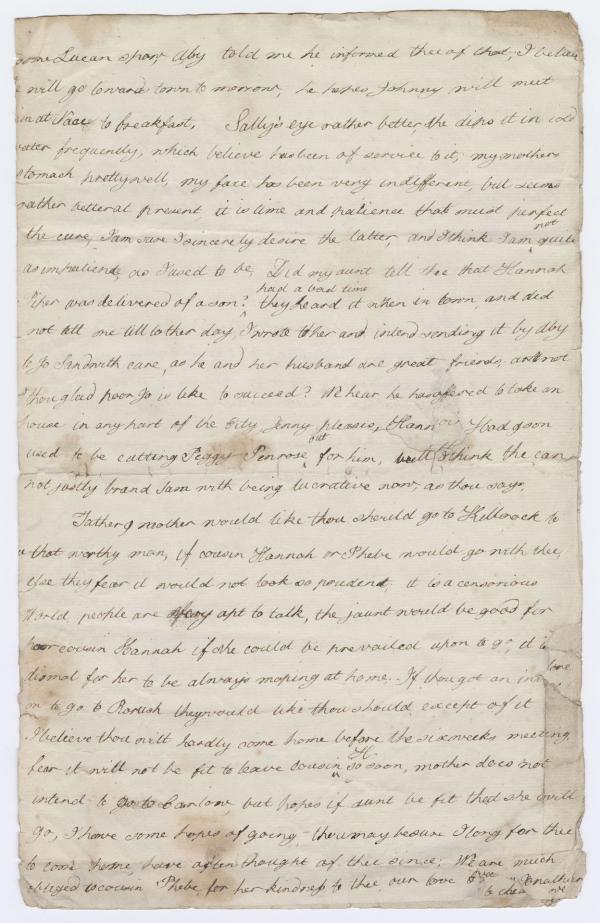 some Lucan spaw Aby told me he informed thee of that, I believe
he will go towards town to morrow, he hopes Johnny will meet
him at to breakfast, Sally's eye rather better, she dips it in cold
water frequently, which believe has been of service to it, my mothers
stomach pretty well, my face has been very indifferent, but seems
rather better at present, it is time and patience that must perfect
the cure, I am sure I sincerely desire the latter, and I think I am not quite
as impatient as I used to be, Did my aunt tell thee that Hannah
Piker was delivered of a son? had a bad time they heard it when in town, and did
not tell me till tother day, I wrote to her and intend sending it by Aby
to Jo Sandwith care, as he and her husband are great friends, art not
thou glad poor Jo is like to succeed? We hear he has offered to take an
house in any part of the City Jenny pleases, Hannah Hadgson
used to be cutting Peggy Penrose out for him, I think she can
not justly brand Sam with being lucrative now, as thou says,
Father & mother would like thou should go to Killcrock to
that worthy man, if cousin Hannah or Phebe would go with thee,
else they fear it would not look so prudent, it is a censorious
World, people are very apt to talk, the jaunt would be good for
poor cousin Hannah if she could be prevailed upon to go, it is
dismal for her to be always moping at home, If thou got an
on to go to they would like thou should except of it
I believe thou wilt hardly come home before the six weeks meeting,
fear it will not be fit to leave cousin H so soon, mother does not
intend to go to Carlow, but hopes if aunt be fit that she will
go, I have some hopes of going, thou may be sure I long for thee
to come home, have often thought of thee since; We are much
obliged to cousin Phebe, for her kindness to thee, our love to Jonathan